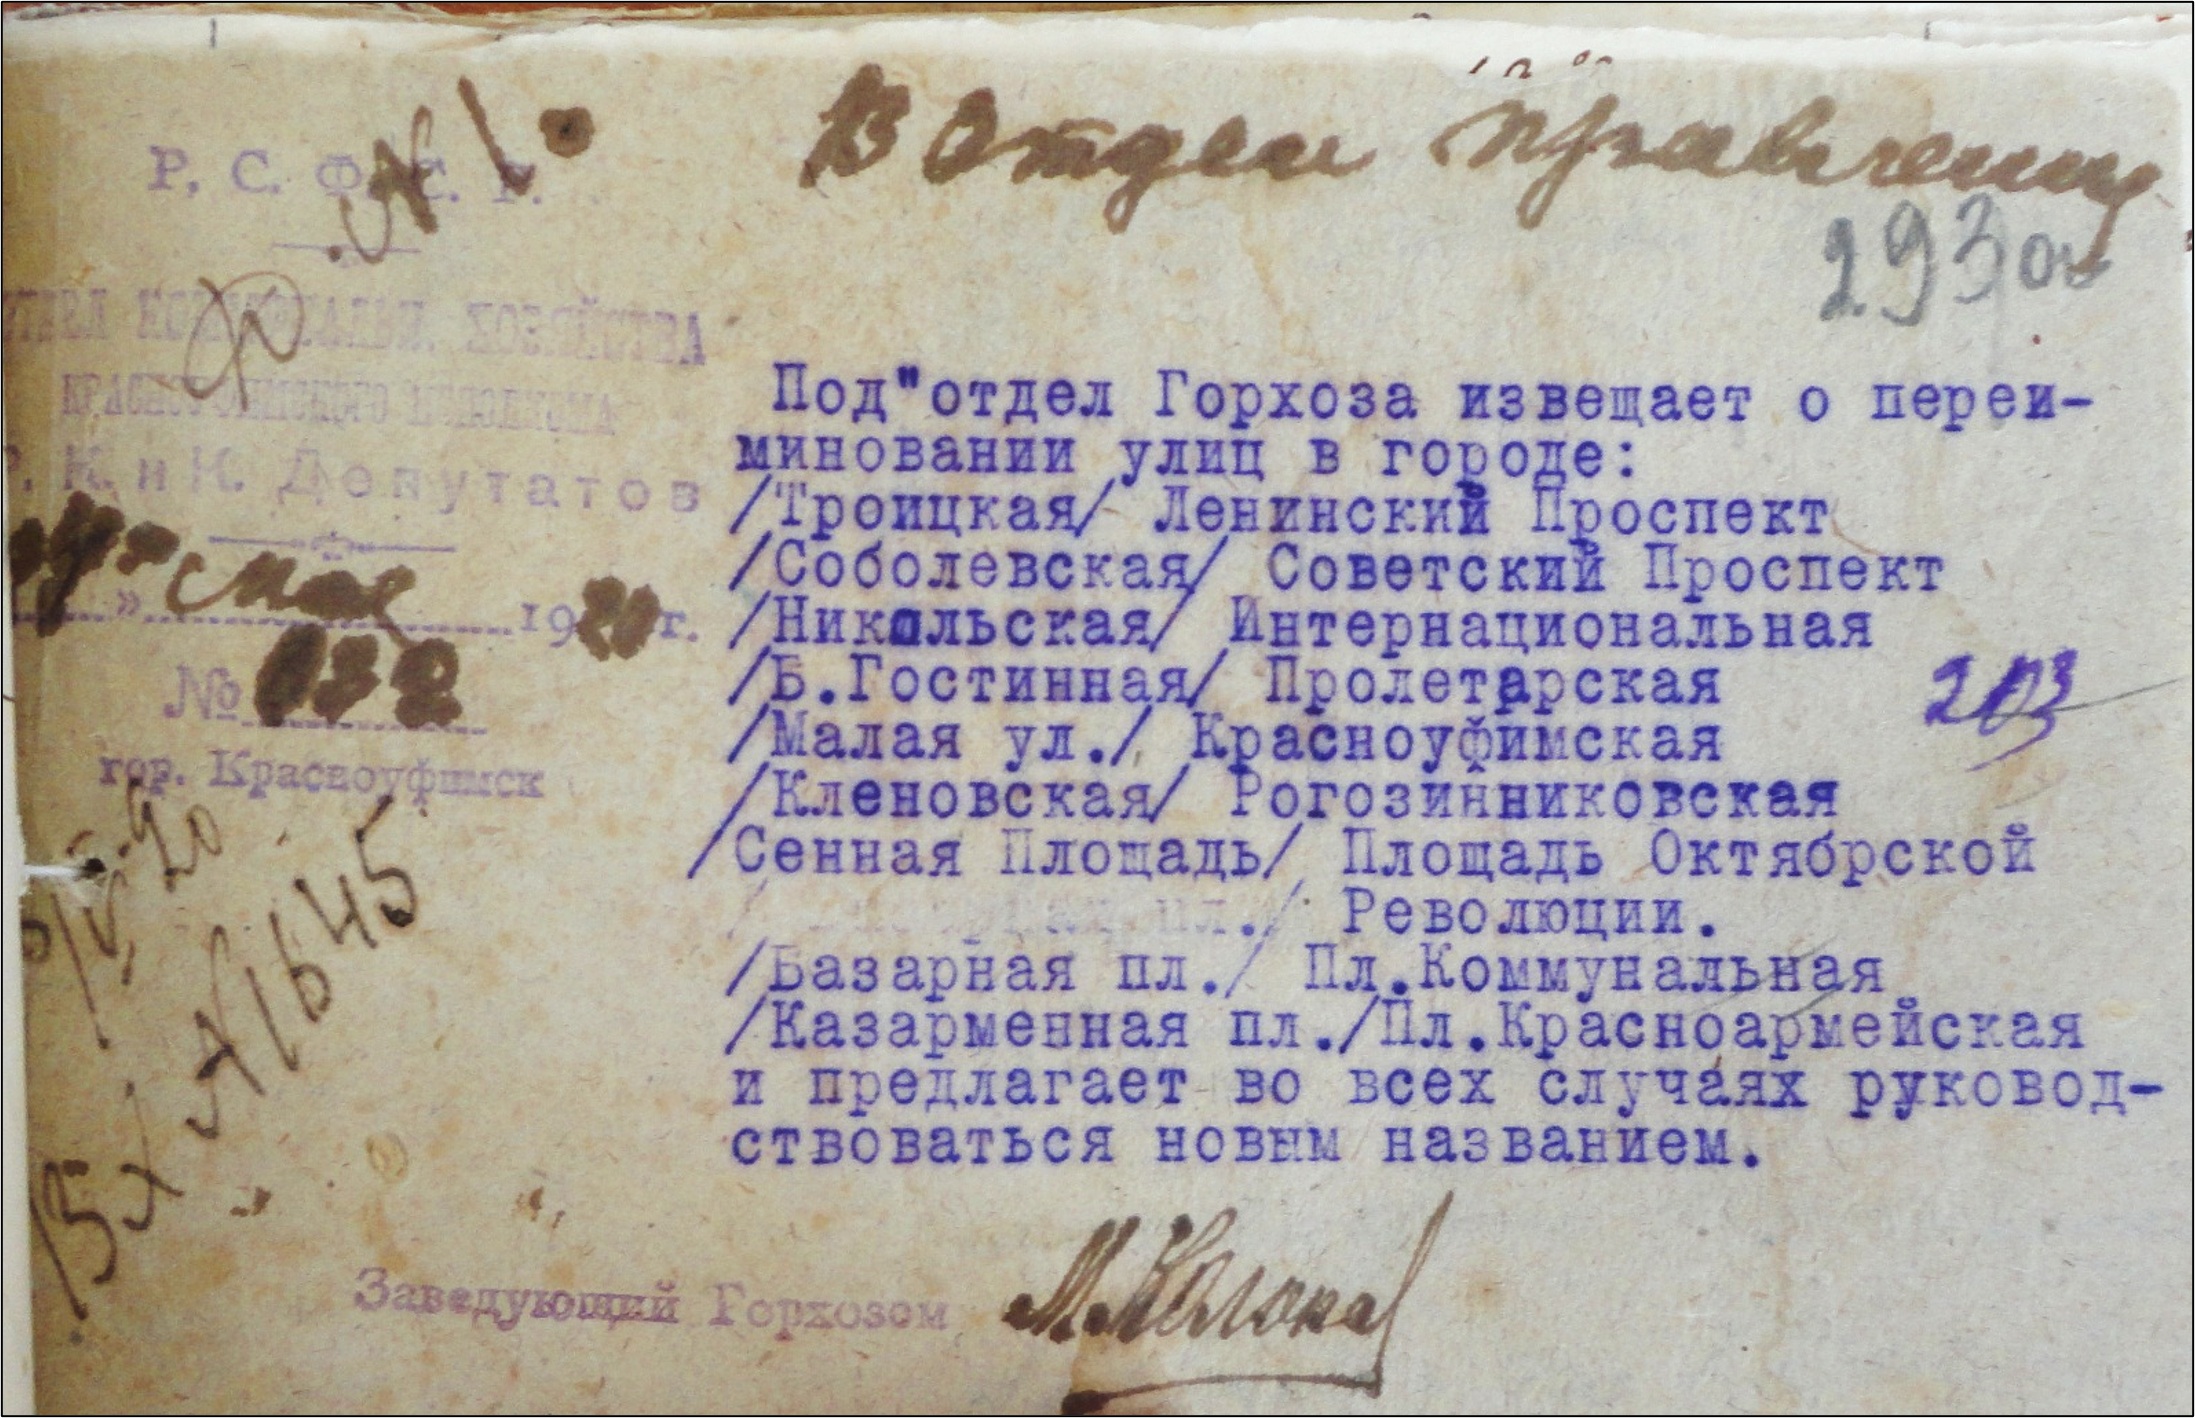 В Отдел Управления
293 об
Р. С. Ф. С. Р.
ОТДЕЛ КОММУНАЛЬН. ХОЗЯЙСТВА
КРАСНОУФИМСКОГО ИСПОЛКОМА
Р. К. и К. Депутатов
" мая 1920 г.
№ 132
гор. Красноуфимск
Вх № 1645
Под"отдел Горхоза извещает о переи-
миновании улиц в городе:
/Троицкая/ Ленинский Проспект
/Соболевская/ Советский Проспект
/Никольская/ Интернациональная
/Б.Гостинная/ Пролетарская
203
/Малая ул./ Красноуфимская
/Кленовская/ Рогозинниковская
/Сенная Площадь/ Площадь Октябрской
пл./ Революции.
/Базарная пл./ Пл.Коммунальная
/Казарменная пл./Пл.Красноармейская
и предлагает во всех случаях руковод-
ствоваться новым названием.
Заведующий Горхозом